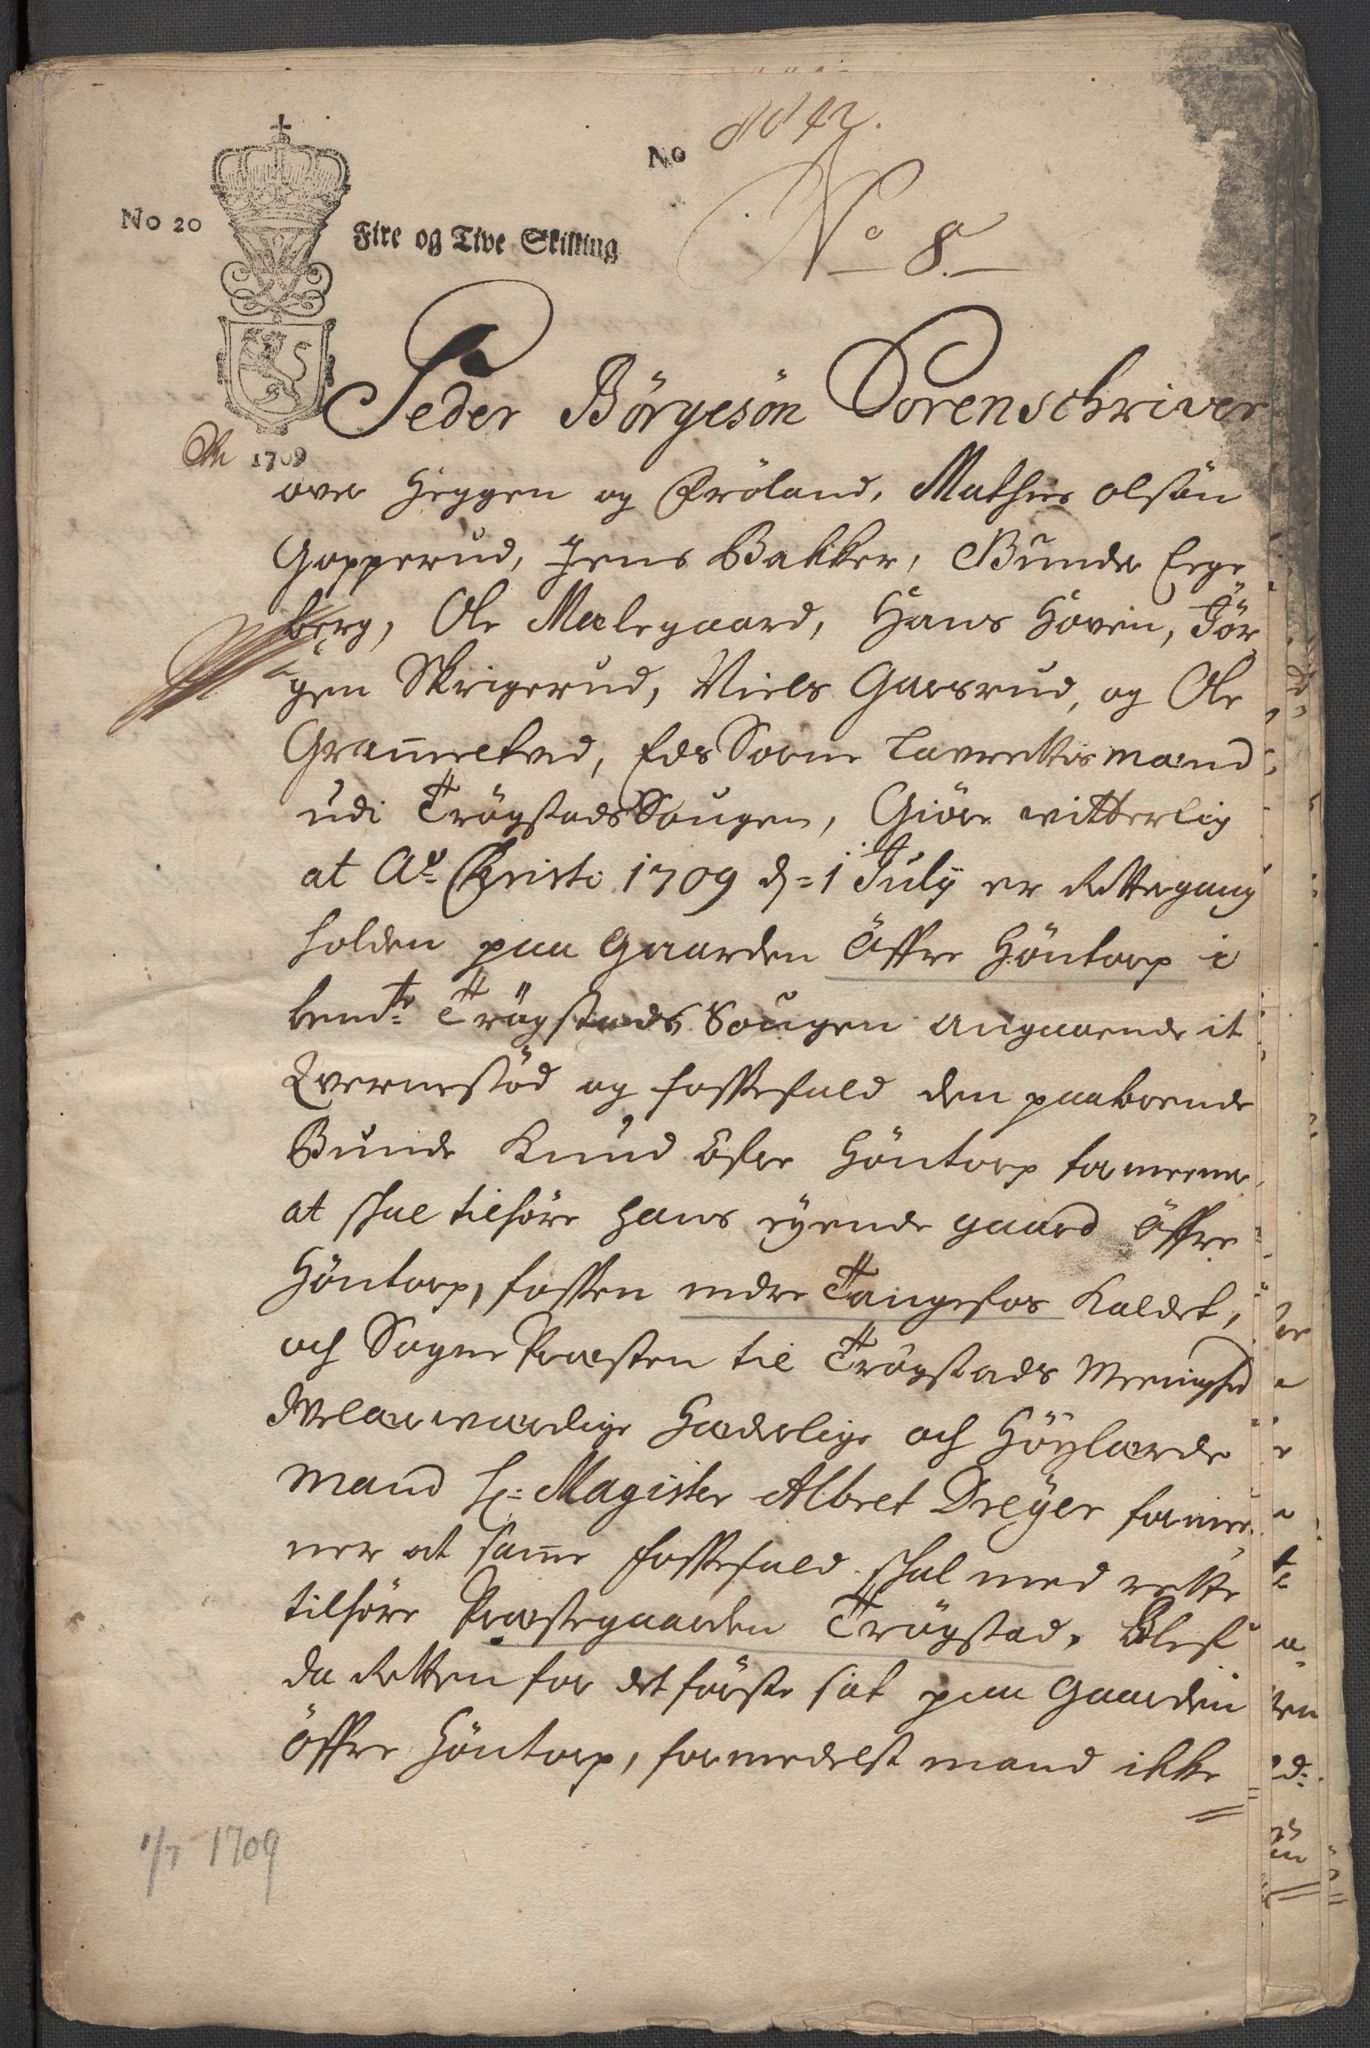 No 42.
No 20
Fire og Tive Skilling
No 8.
1709
Peder Börgesön Sorenschriver
over Heggen og Fröland, Mathis Olsön
Gopperud, Jens Bakker, Bunde Erge
berg, Ole Melegaard, Hans Haven, Jör
gen Skrigerud, Niels Gaarsrud, og Ole
Grav̄eltved, Eds Sorne Lavrettis mænd
udi Trögstads Sougen, Giöre witterlig
at Ao Christi 1709 d= 1 July er Rettegang
holden paa Gaarden Öffre Höntorp i
bemte Trögstads Sougen angaaende it
Qvernestöd og fossefald den paaboende
Bunde Knud Öfre Höntorp formeener
at skal tilhöre hans eyende gaard Öffre
Höntorp, fossen nedre Tangefos kaldet,
och Sogne Præsten til Trögstads Meenighed
Welærværdige Hæderlige och Höylærde
Mand Hr: Magister Albret Dreyer formee
ner at sam̄e fossefald skal med rette
tilhöre Præstegaarden Trögstad. Blef
da Retten for det förste sat paa Gaarden
Öffre Höntorp, formedelst mand ikke
1/7 1709